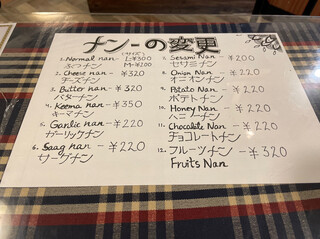 ナンーの変更
1. Normal nan- L-¥300
ふつナン M-¥200
2. Cheese nan- ¥320
チーズナン
3. Butter nan- ¥320
バターナン
4. Keema nan- ¥350
キーマナン
5. Garlic nan- ¥220
ガーリックナン
6. Saag nan- ¥220
サーグナン
7. Sesami Nan- ¥200
セサミナン
8. Onion Nan- ¥220
オニオンナン
9. Potato Nan- ¥220
ポテトナン
10. Honey Nan- ¥220
ハニーナン
11. Chocolate Nan- ¥220
チョコレートナン
12. フルーツナン- ¥320
Fruits Nan